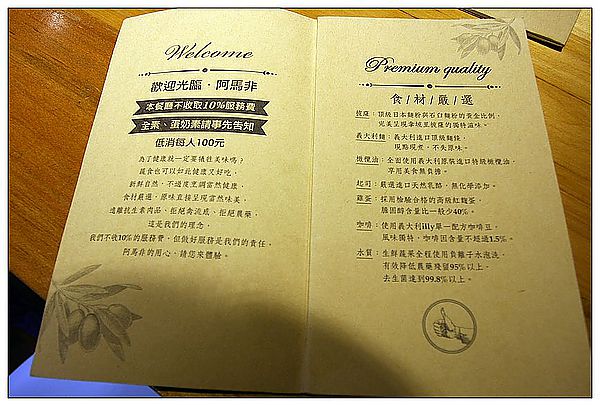 Welcome
歡迎光臨．阿馬非
本餐廳不收取10%服務費
全素、蛋奶素請事先告知
低消每人100元
為了健康就一定要犧牲美味嗎？
蔬食也可以如此健康又好吃，
新鮮自然，不過度烹調當然健康，
食材嚴選，原味直接呈現當然味美，
遠離抗生素肉品、拒絕禽流感、拒絕農藥，
這是我們的理念，
我們不收10%的服務費，但做好服務是我們的責任。
阿馬非的用心，請您來體驗。
Premium quality
食/材/嚴/選
披薩：頂級日本麵粉與石臼麵粉的黃金比例，
完美呈現拿坡里披薩的獨特滋味。
義大利麵：義大利進口頂級麵條，
現點現煮，不失原味。
橄欖油：全面使用義大利原裝進口特級橄欖油，
享用美食無負擔。
起司：嚴選進口天然乳酪，無化學添加。
雞蛋：採用檢驗合格的高級紅麴蛋，
膽固醇含量比一般少40%。
咖啡：使用義大利illy單一配方咖啡豆，
風味獨特，咖啡因含量不超過1.5%。
水質：生鮮蔬果全程使用負離子水泡洗，
有效降低農藥殘留95%以上，
去生菌達到99.8%以上。